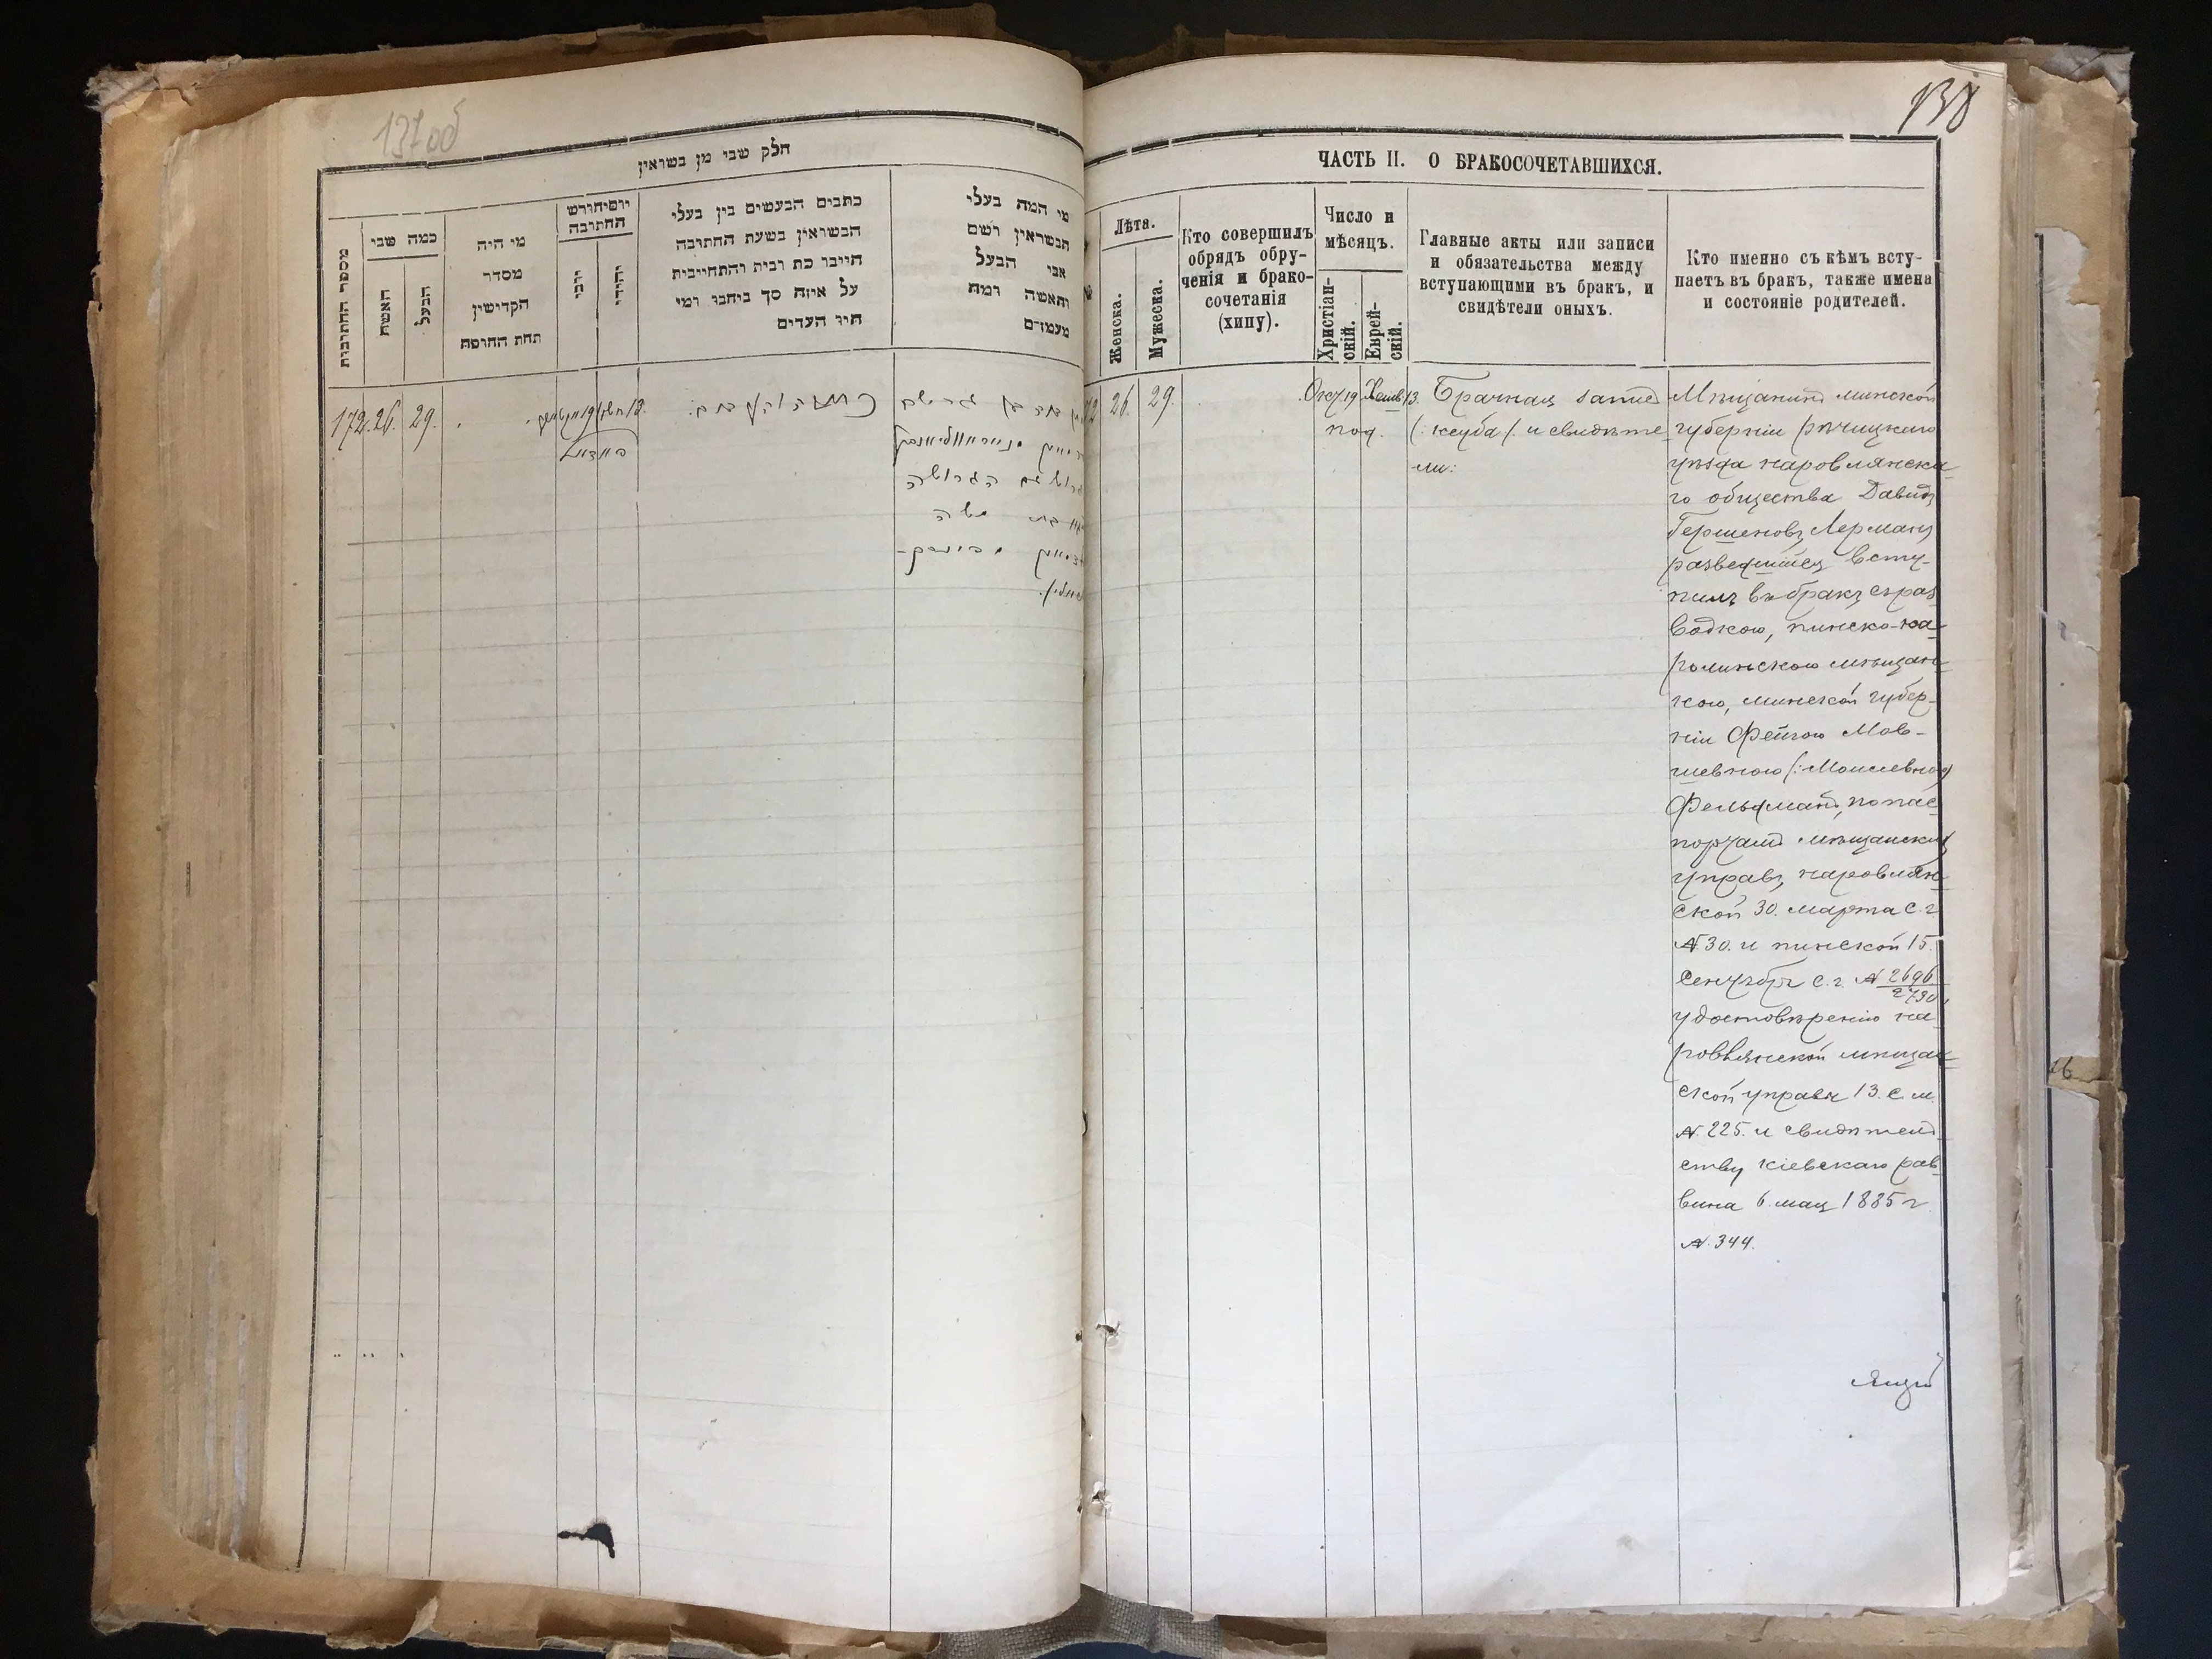 137об
חלק שני מן בשואין
מספר החתונות
כמה שני
האשה
הבעל
מי היה
מסדר
הקדושין
תחת החופה
יום וחודש
החתונה
יוני
יהודי
כתבים הנעשים בין בעלי
הנשואין בשעת החתונה
חייבו כת רבית והתחייבות
על איזה סך ניתנו ומי
היו העדים
מי המה בעלי
הנשואין ושם
אבי הבעל
והאשה ומה
מעמדם
172. 26. 29. 19 13.
138
ЧАСТЬ II. О БРАКОСОЧЕТАВШИХСЯ.
Лѣта.
Женска.
Мужеска.
Кто совершилъ
обрядъ обру-
ченія и брако-
сочетанія
(хипу).
Число и
мѣсяцъ.
Христіан-
скій.
Еврей-
скій.
Главные акты или записи
и обязательства между
вступающими въ бракъ, и
свидѣтели оныхъ.
Кто именно съ кѣмъ всту-
паетъ въ бракъ, также имена
и состояніе родителей.
26. 29. Окт. 19 Хешв. 13.
Брачная запись
(: ксуба /. и свидѣте
ли:
Мѣщанинъ минской
губерніи рѣчицкаго
уѣзда наровлянска
го общества Давидъ
Гершеновъ Лерманъ
разведшійся всту-
пилъ въ бракъ съ раз
водкою, пинско-ка-
ролинскою мѣщан-
кою, минской губер-
ніи Фейгою Мов-
шевною (: Моисеевною)
Фельдманъ, по пас
портамъ мѣщанскихъ
управъ, наровлян-
ской 30. марта с. г.
N. 30. и пинской 15.
Сентября с. г. N 2696/2730,
удостовѣренію на
ровлянской мѣщан-
ской управы 13. с. м.
N. 225. и свидѣтель
ству кіевскаго рав
вина 6. мая 1885 г.
N. 344.